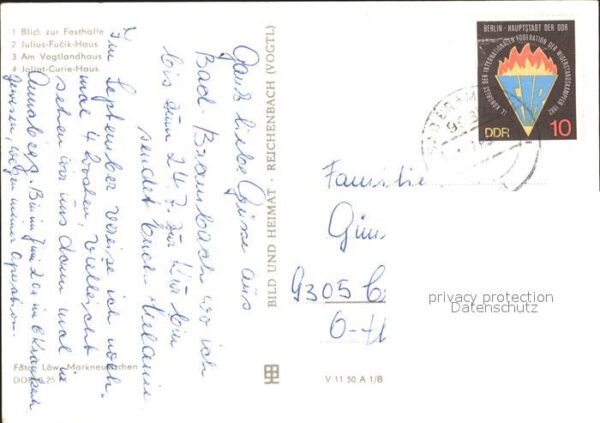 1 Blick zur Festhalle
2 Julius-Fučik-Haus
3 Am Vogtlandhaus
4 Joliot-Curie-Haus
Ganz liebe Grüße aus
Bad. Brambach wo ich
bis zum 24.7. zur Kur bin
sendet Euch Melanie
Im September reise ich noch
mal 4 Wochen, vielleicht
sehen wir uns dann mal in
Annaberg. Bin im Juni 2 in Krankenh
gewesen wegen meiner Operation.
Foto: Löw, Markneukirchen
BILD UND HEIMAT · REICHENBACH (VOGTL)
V 11 50 A 1/B
BERLIN - HAUPTSTADT DER DDR
IX. KONGRESS DER INTERNATIONALEN FÖDERATION DER WIDERSTANDSKÄMPFER 1982
FIR
DDR
10
Familie
9305
privacy protection
Datenschutz